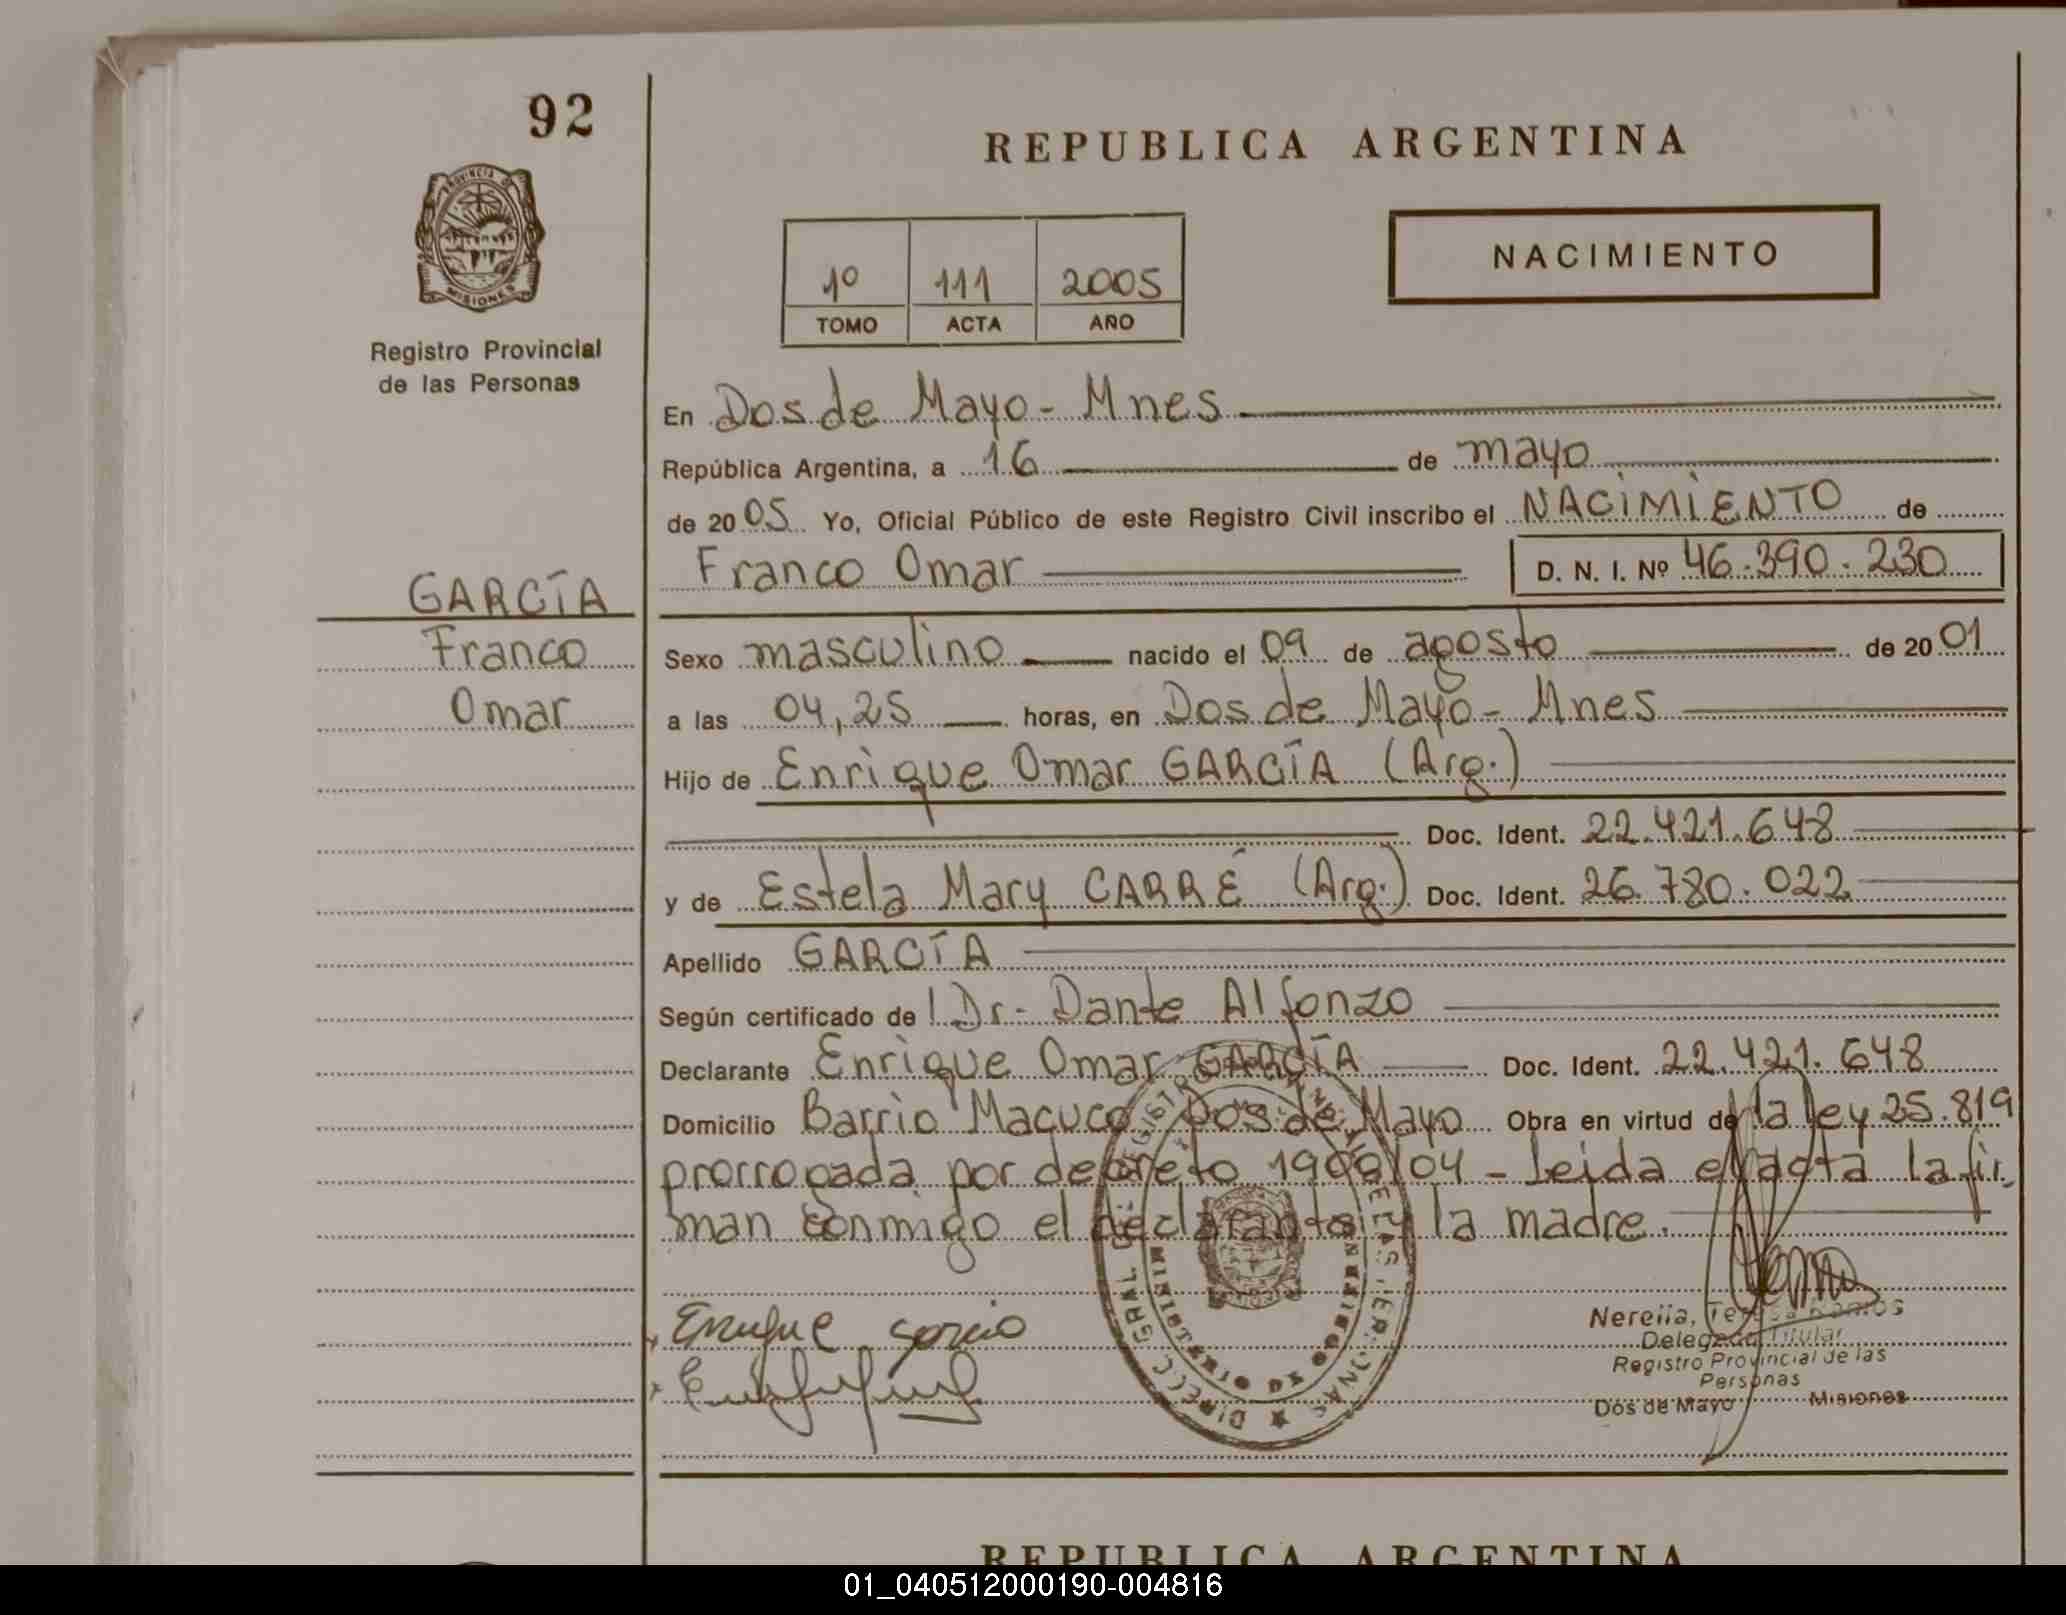 92
REPUBLICA ARGENTINA
PROVINCIA DE
MISIONES
Registro Provincial
de las Personas
NACIMIENTO
1º 111 2005
TOMO ACTA AÑO
En Dos de Mayo - Mnes
República Argentina, a 16 de mayo
de 2005 Yo, Oficial Público de este Registro Civil inscribo el NACIMIENTO de
Franco Omar D. N. I. Nº 46.390.230
GARCÍA
Franco
Omar
Sexo masculino nacido el 09 de agosto de 2001
a las 04,25 horas, en Dos de Mayo - Mnes
Hijo de Enrique Omar GARCÍA (Arg.)
Doc. Ident. 22.421.648
y de Estela Mary CARRÉ (Arg.) Doc. Ident. 26.780.022
Apellido GARCÍA
Según certificado de l Dr. Dante Alfonzo
Declarante Enrique Omar GARCÍA Doc. Ident. 22.421.648
Domicilio Barrio Macuco Dos de Mayo Obra en virtud de la ley 25.819
prorrogada por decreto 1908/04 - Leida el acta la fir
man conmigo el declarante y la madre.
Enrique
Teresa Ramos
Delegada Titular
Registro Provincial de las
Personas
Dos de Mayo Misiones
REPUBLICA ARGENTINA
01_040512000190-004816